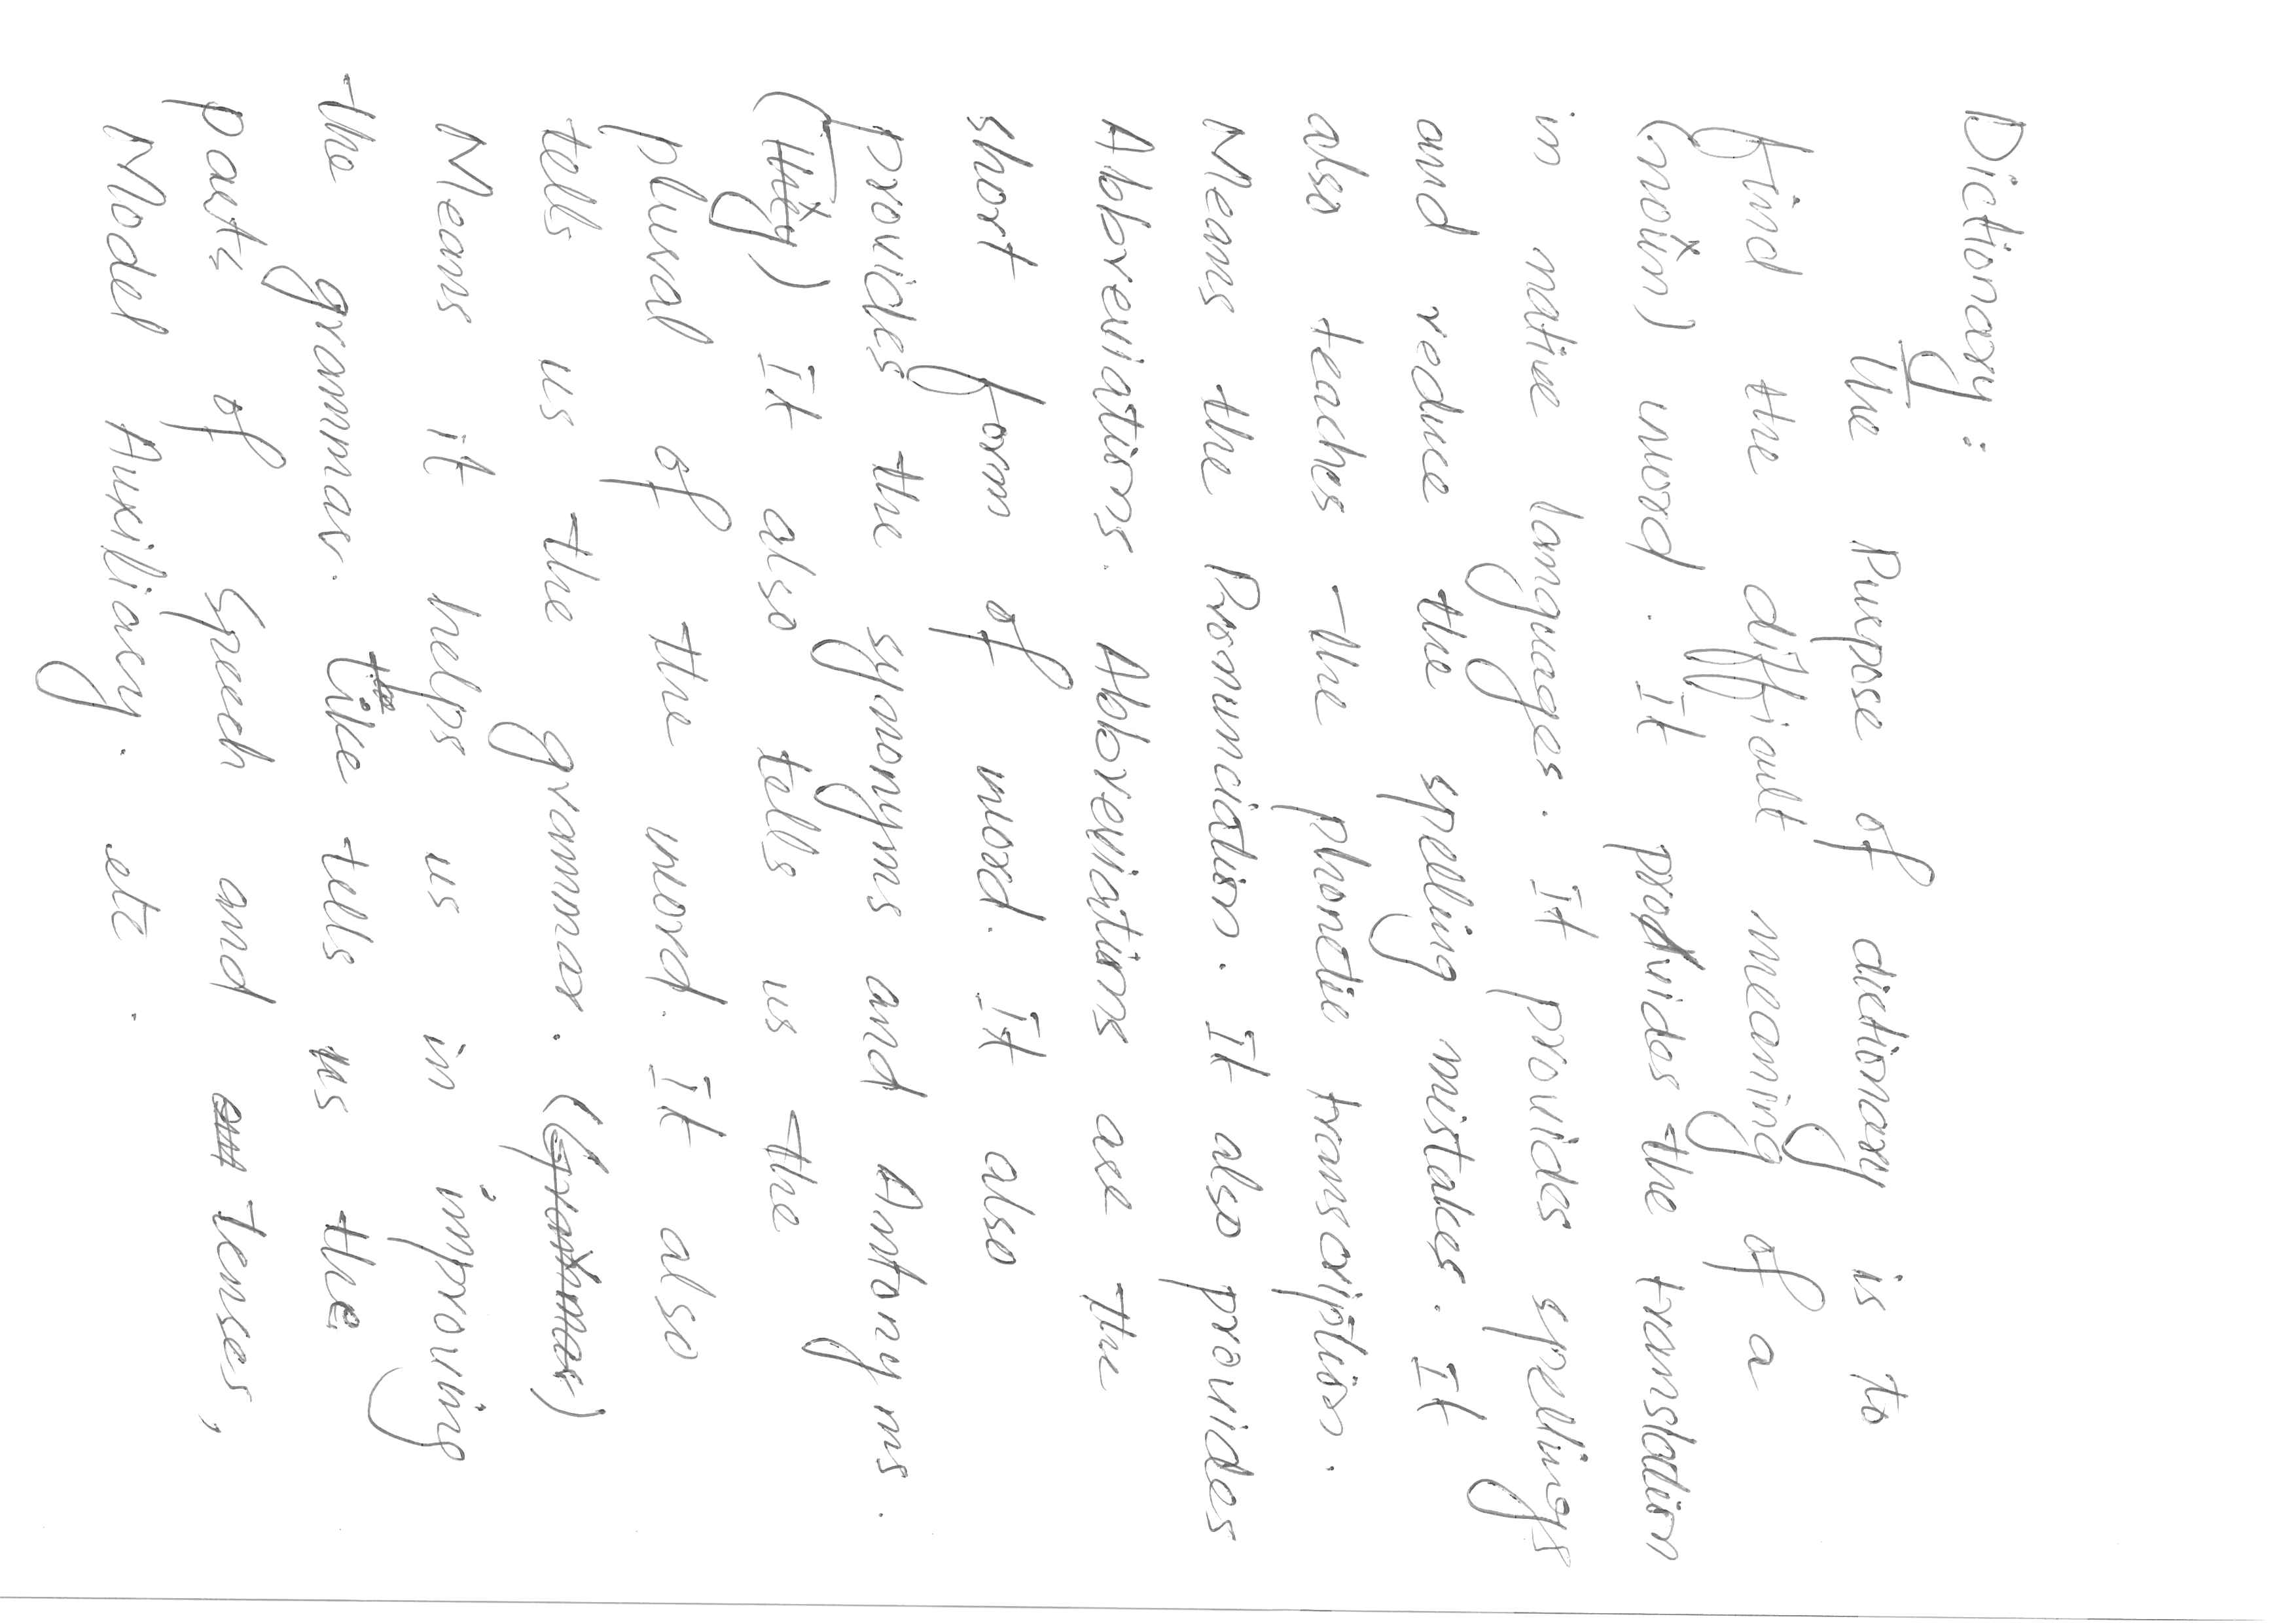 Dictionary :
The Purpose of dictionary is to
find the difficult meaning of a
(noun) word . It provides the translation
in native languages. It provides spellings
and reduce the spelling mistakes. It
also teaches the phonetic transcription.
Means the Pronunciation. It also provides
Abbreviations. Abbreviations are the
short form of word. It also
provides the synonyms and Antonyms.
(They) It also tells us the
plural of the word. It also
tells us the grammar. (Grammar)
Means it helps us in improving
the grammar. Like tells us the
parts of Speech and tenses,
Model Auxiliary. etc .